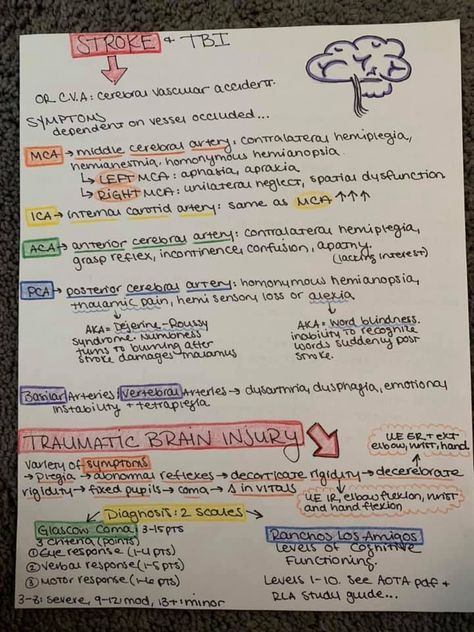 STROKE & TBI
OR C.V.A: cerebral vascular accident.
SYMPTOMS
dependent on vessel occluded...
MCA → middle cerebral artery: contralateral hemiplegia,
hemianesthesia, homonymous hemianopsia
↳ LEFT MCA: aphasia, apraxia
↳ RIGHT MCA: unilateral neglect, spatial dysfunction
ICA → internal carotid artery: same as MCA ↑↑↑
ACA → anterior cerebral artery: contralateral hemiplegia,
grasp reflex, incontinence, confusion, apathy.
(lacking interest)
PCA → posterior cerebral artery: homonymous hemianopsia,
thalamic pain, hemi sensory loss or alexia
AKA = Dejerine-Roussy
syndrome. Numbness
turns to burning after
stroke damages thalamus
AKA = word blindness.
inability to recognize
words suddenly post
stroke.
Basilar Arteries; Vertebral Arteries → dysarthria, dysphagia, emotional
instability + tetraplegia
TRAUMATIC BRAIN INJURY
UE ER + ext
elbow, wrist, hand
variety of symptoms
→ plegia → abnormal reflexes → decorticate rigidity → decerebrate
rigidity → fixed pupils → coma → Δ in vitals
UE IR, elbow flexion, wrist
and hand flexion
Diagnosis: 2 scales
Glascow Coma 3-15 pts
3 criteria (points)
① Eye response (1-4 pts)
② Verbal response (1-5 pts)
③ Motor response (1-6 pts)
3-8: severe, 9-12: mod, 13+: minor
Ranchos Los Amigos
Levels of Cognitive
Functioning.
Levels 1-10. See AOTA pdf +
RLA study guide...